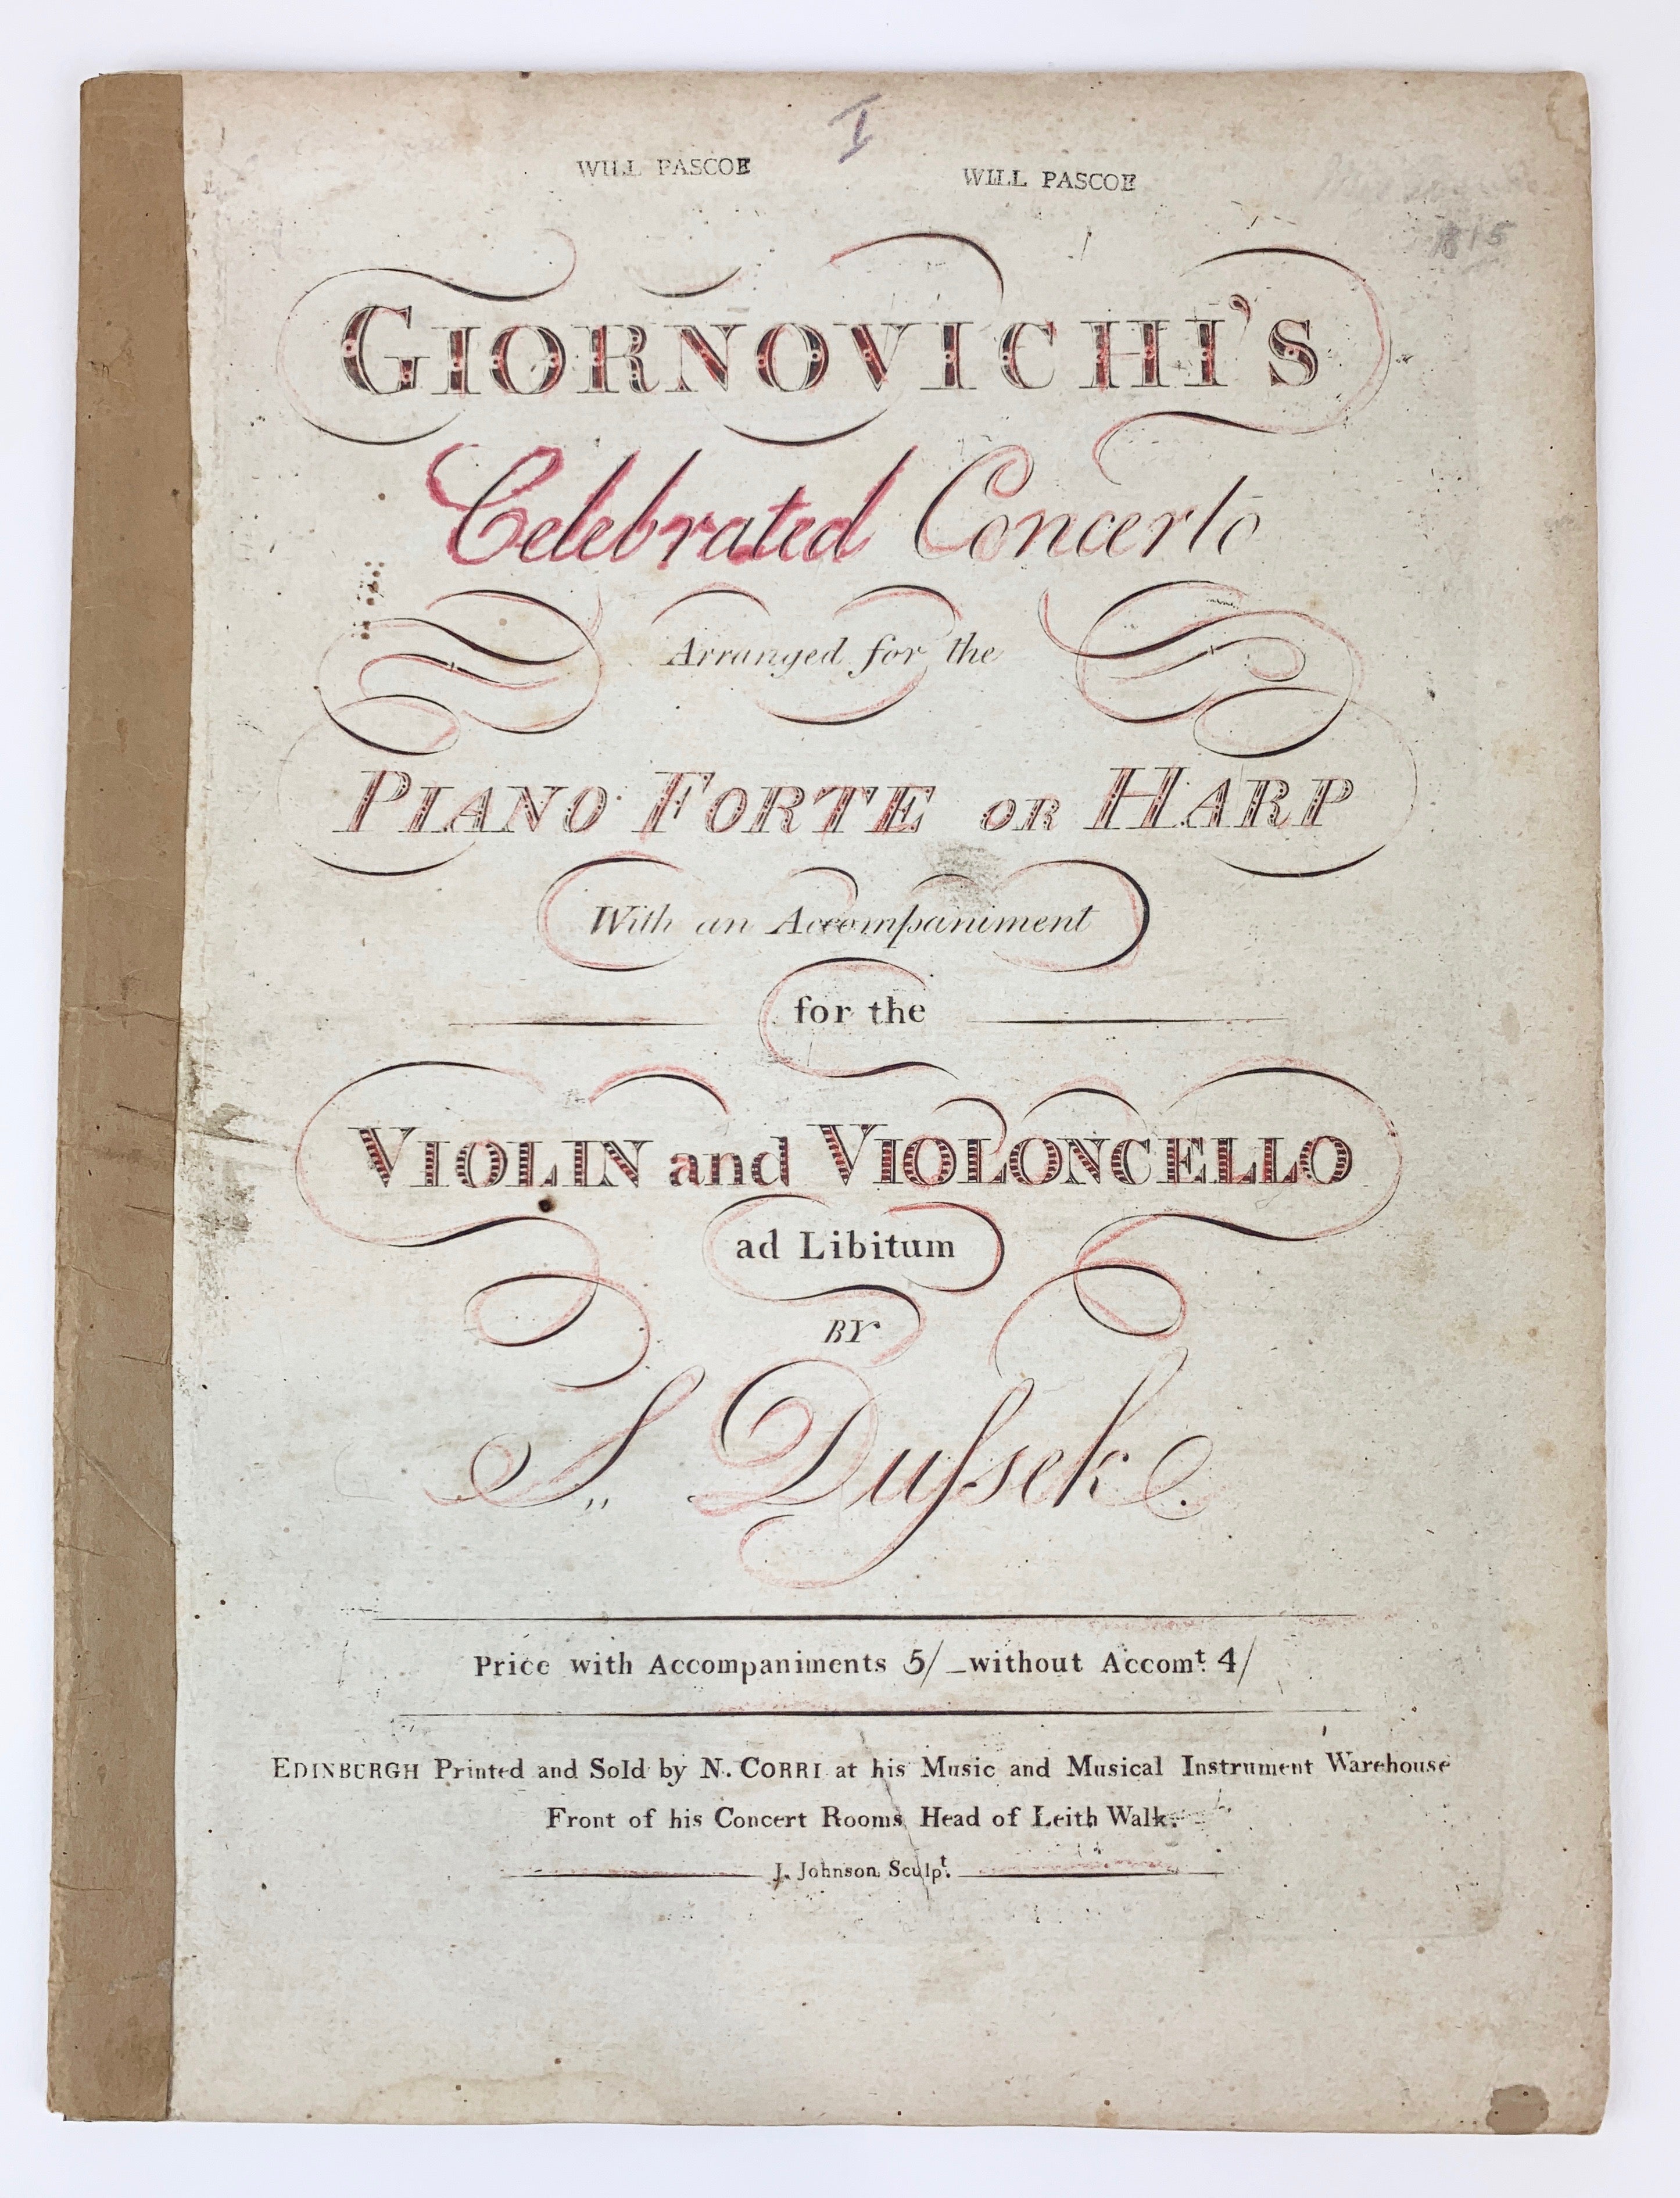 I
WILL PASCOE WILL PASCOE
1815
GIORNOVICHI'S
Celebrated Concerto
Arranged for the
PIANO FORTE OR HARP
With an Accompaniment
for the
VIOLIN and VIOLONCELLO
ad Libitum
BY
S,, Duſsek.
Price with Accompaniments 5/ _without Accomt. 4/
EDINBURGH Printed and Sold by N. CORRI at his Music and Musical Instrument Warehouse
Front of his Concert Rooms Head of Leith Walk.
J. Johnson Sculpt.